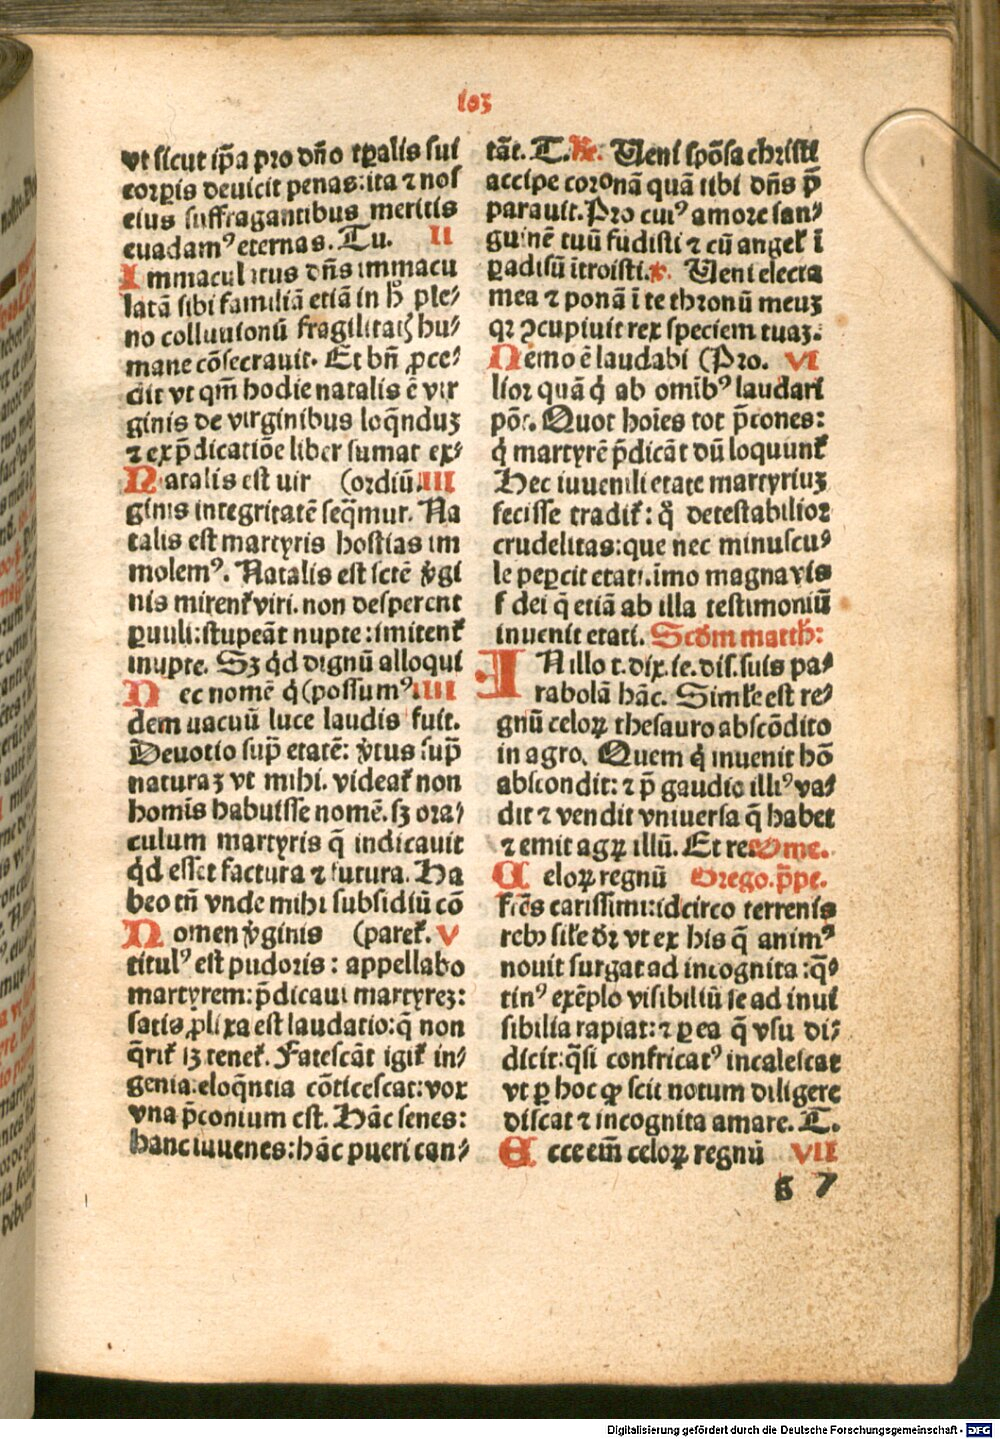 103
vt sicut ip̄a pro dn̄o tꝑalis sui
corpis deuicit penas:ita ⁊ nos
eius suffragantibus meritis
euadamꝰ eternas. Tu. II
Immaculatus dn̄s immacu
latā sibi familiā etiā in h̄ ple⸗
no colluuionū fragilitatꝭ hu⸗
mane cōsecrauit. Et bn̄ ꝓce⸗
dit vt qm̄ hodie natalis ē vir
ginis de virginibus loq̄nduꝫ
⁊ ex p̄dicatiōe liber sumat ex⸗
Natalis est uir (ordiū. III
ginis integritatē seq̄mur. Na
talis est martyris hostias im
molemꝰ. Natalis est sctē v̄gi
nis mirent᷑ viri. non desperent
ꝑuuli:stupeāt nupte:imitent᷑
inupte. Sꝫ qd̄ dignū alloqui
Nec nomē q̄ (possumꝰ. IIII
dem uacuū luce laudis fuit.
Deuotio sup̄ etatē: v̄tus sup̄
naturaꝫ vt mihi. videat᷑ non
homīs habuisse nomē. sꝫ ora⸗
culum martyris q̄ indicauit
qd̄ esset factura ⁊ futura. Ha
beo tn̄ vnde mihi subsidiū cō
Nomen v̄ginis (paret᷑. V
titulꝰ est pudoris: appellabo
martyrem:p̄dicaui martyreꝫ:
satis ꝓlixa est laudatio:q̄ non
q̄rit᷑ iꝫ tenet᷑. Fatescāt igit᷑ in⸗
genia:eloq̄ntia cōticescat:vox
vna p̄conium est. Hāc senes:
hanc iuuenes:hāc pueri can⸗
tāt. T. R̄. Ueni spōsa christi
accipe coronā quā tibi dn̄s p̄
parauit. Pro cuiꝰ amore san⸗
guinē tuū fudisti ⁊ cū angel᷑ ī
ꝑadisū ītroisti. v. Ueni electa
mea ⁊ ponā ī te thronū meuꝫ
qꝛ ꝯcupiuit rex speciem tuaꝫ.
Nemo ē laudabi (Pro. VI
lior quā q̄ ab omībꝰ laudari
pōt. Quot hoīes tot p̄cones:
q̄ martyrē p̄dicāt dū loquunt᷑
Hec iuuenili etate martyriuꝫ
fecisse tradit᷑: q̄ detestabilior
crudelitas:que nec minuscu⸗
le pepercit etati.imo magna vis
f᷑ dei q̄ etiā ab illa testimoniū
inuenit etati. Scd̄m matth:
IN illo t. dix. ie. dis. suis pa⸗
rabolā hāc. Simile est re⸗
gnū celoꝝ thesauro abscōdito
in agro. Quem q̄ inuenit hō
abscondit: ⁊ p̄ gaudio illiꝰ va⸗
dit ⁊ vendit vniuersa q̄ habet
⁊ emit agꝝ illū. Et re. Ome.
Celoꝝ regnū Grego. p̄pe.
fr̄es carissimi:idcirco terrenis
rebꝰ sil᷑e dꝛ vt ex his q̄ animꝰ
nouit surgat ad incognita:q̄⸗
tinꝰ exēplo visibiliū se ad inui
sibilia rapiat:⁊ ꝑ ea q̄ vsu di⸗
dicit:q̄si confricatꝰ incalescat
vt ꝑ hoc ꝙ scit notum diligere
discat ⁊ incognita amare. T.
Ecce em̄ celoꝝ regnū VII
Digitalisierung gefördert durch die Deutsche Forschungsgemeinschaft - DFG